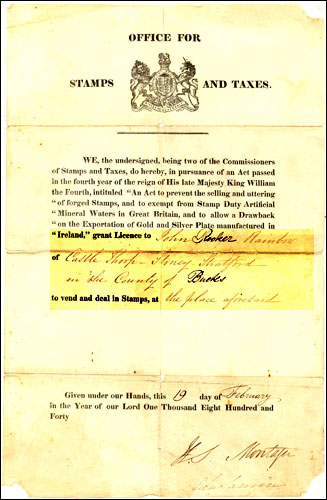 OFFICE FOR
STAMPS AND TAXES.
WE, the undersigned, being two of the Commissioners
of Stamps and Taxes, do hereby, in pursuance of an Act passed
in the fourth year of the reign of His late Majesty King William
the Fourth, intituled "An Act to prevent the selling and uttering
"of forged Stamps, and to exempt from Stamp Duty Artificial
"Mineral Waters in Great Britain, and to allow a Drawback
"on the Exportation of Gold and Silver Plate manufactured in
"Ireland," grant Licence to John Rooker
of Castle Thorp Stoney Stratford
in the County of Bucks
to vend and deal in Stamps, at the place aforesaid
Given under our Hands, this 19 day of February
in the Year of our Lord One Thousand Eight Hundred and
Forty
H. S. Montagu